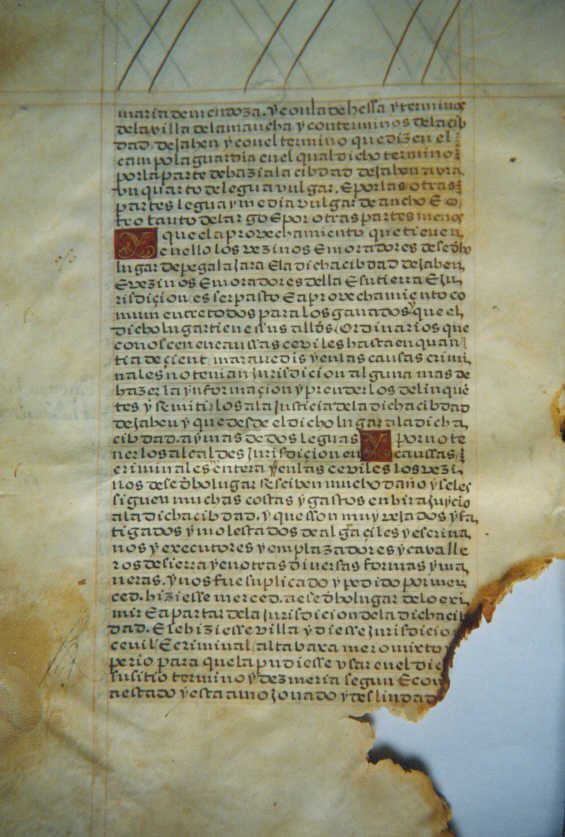 maria de mendoza. y con la dehessa y termino
de la villa de la mancha y con terminos de la cib
dad. de Jahen y con el termino que dizen el
campo la guardia en el qual dicho termino
por la parte de hazia la cibdad de Jahen avra
un quarto de legua vulgar. E por las otras
partes legua y media vulgar de ancho E o
tro tanto de largo E por otras partes menos
Y que el aprovechamiento que tienen
en ello los vezinos E moradores dese dho
lugar de pegalajara E la dicha cibdad de Jahen,
E vezinos E moradores della E su tierra E Ju
risdiçion, es ser pasto E aprovechamiento co
mun entre todos para los ganados y que el,
dicho lugar tiene sus allds. Ordinarios que
conoscen en caussas ceviles hasta en quan
tia de çient maravedis y en las causas crimi
nales no tenian jurisdicion alguna mas de
hazer la ynformaçion y prender los delinquē
tes y remitirlos a la justicia de la dicha cibdad
de Jahen y que desde el dicho lugar a la dicha,
cibdad. ay mas de dos leguas Y por no te
ner los alcaldes Jurisdicion en caussas
criminales entera y en las ceviles los vezi,
nos dese dho lugar reseiben mucho daño y seles
siguen muchas costas y gastos en hir a juycio
a la dicha cibdad. y que sson muy vexados y fa
tigados y molestados de algaçiles y escriva,
nos y executores y emplazadores y cavalle
ros de sierra y en otras diversas formas y ma
neras. y nos fue suplicado y pedido por mer,
ced. hiziesse merced. a ese dho lugar de lo exi
mir E apartar de la jurisdicion de la dicha cib
dad. E se hiziesse villa y diesse jurisdicio
cevil E criminal alta baxa mero mixto y
perio para que la pudiesse usar en el dic
su sitio termino y dezmeria segun E com
a estado y esta amojonado y deslindad